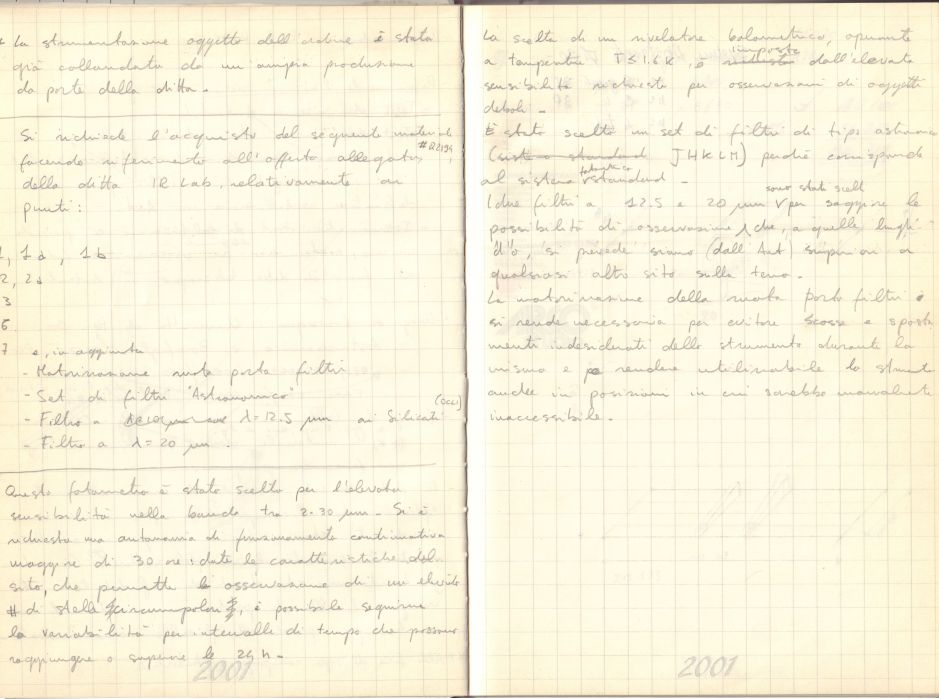 La strumentazione oggetto dell'ordine è stata
già collaudata da un'ampia produzione
da parte della ditta.
Si richiede l'acquisto del seguente material
facendo riferimento all'offerta allegata,
della ditta IR Lab, relativamente ai
punti:
1, 1a, 1b
2, 2a
3
6
7 e, in aggiunta
- Motorizzazione ruota porta filtri
- Set di filtri "Astronomico"
(OCLI)
- Filtro a λ=12.5 μm ai Silicati
- Filtro a λ=20 μm.
Questo fotometro è stato scelto per l'elevata
sensibilità nella banda tra 2-30 μm. Si è
richiesta una autonomia di funzionamento continuativa
maggiore di 30 ore: date le caratteristiche del
sito, che permette la osservazione di un elevato
# di stelle circumpolari, è possibile seguirne
la variabilità per intervalli di tempo che possono
raggiungere o superare le 24 h.
2001
La scelta di un rivelatore bolometrico, operante
imposta
a temperatura T≤1.6K, è dall'elevata
sensibilità richiesta per osservazioni di oggetti
deboli.
È stato scelto un set di filtri di tipo
(sistema standard JHKLM) perché corrisponde
al sistema fotometrico standard.
sono stati scelti
I due filtri a 12.5 e 20 μm per saggiare le
possibilità di osservazione che, a quelle lungh.
d'o, si prevede siano (dall'Ant) superiori a
qualsiasi altro sito sulla terra.
La motorizzazione della ruota porta filtri
si rende necessaria per evitare scosse e sposta
menti indesiderati dello strumento durante la
misura e rendere utilizzabile lo strument
anche in posizioni in cui sarebbe manualmente
inaccessibile.
2001